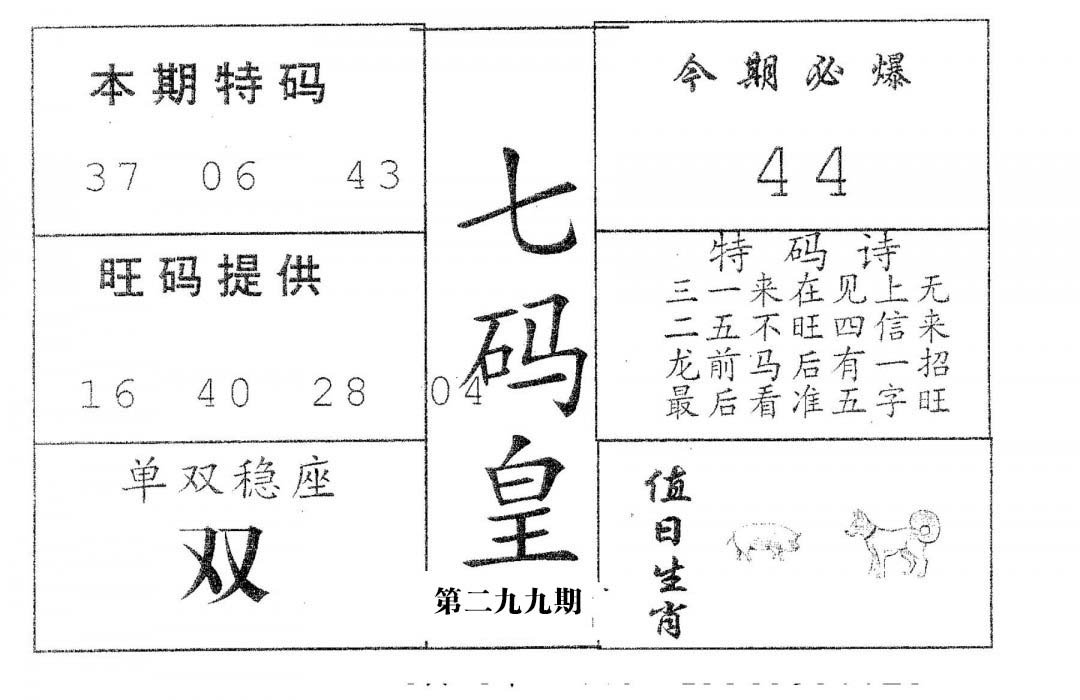 本期特码
37 06 43
旺码提供
16 40 28 04
单双稳座
双
七码皇
第二九九期
今期必爆
44
特码诗
三一来在见上无
二五不旺四信来
龙前马后有一招
最后看准五字旺
值日生肖